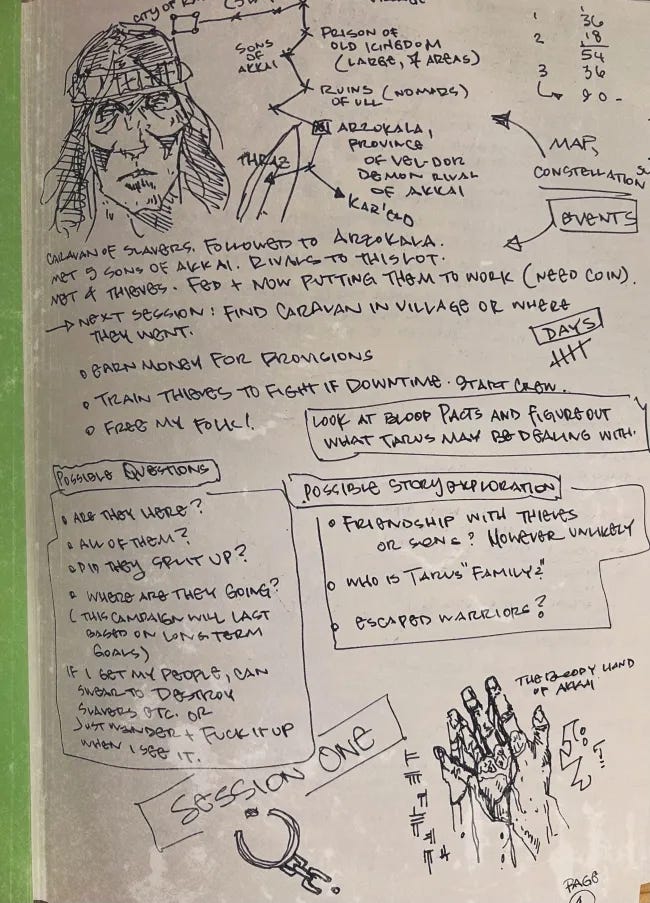 CITY OF
VILLAGE
SONS
OF
AKKAI
PRISON OF
OLD KINGDOM
(LARGE, 7 AREAS)
RUINS (NOMADS)
OF ULL
ARZOKALA,
PROVINCE
OF VEL-DOR
DEMON RIVAL
OF AKKAI
THRAZ
1 36
2 18
54
3 36
90-
MAP,
CONSTELLATION
EVENTS
CARAVAN OF SLAVERS. FOLLOWED TO ARZOKALA.
MET 9 SONS OF AKKAI. RIVALS TO THIS LOT.
MET 4 THIEVES. FED + NOW PUTTING THEM TO WORK (NEED COIN).
→ NEXT SESSION: FIND CARAVAN IN VILLAGE OR WHERE
THEY WENT.
DAYS
• EARN MONEY FOR PROVISIONS
• TRAIN THIEVES TO FIGHT IF DOWNTIME. START CREW.
• FREE MY FOLK!
LOOK AT BLOOD PACTS AND FIGURE OUT
WHAT TARUS MAY BE DEALING WITH.
POSSIBLE QUESTIONS
• ARE THEY HERE?
• ALL OF THEM?
• DID THEY SPLIT UP?
• WHERE ARE THEY GOING?
(THIS CAMPAIGN WILL LAST
BASED ON LONG TERM
GOALS)
IF I GET MY PEOPLE, CAN
SWEAR TO DESTROY
SLAVERS ETC. OR
JUST WANDER + FUCK IT UP
WHEN I SEE IT.
POSSIBLE STORY EXPLORATION
• FRIENDSHIP WITH THIEVES
OR SONS? HOWEVER UNLIKELY
• WHO IS TARUS "FAMILY?"
• ESCAPED WARRIORS?
THE BLOODY HAND
OF AKKAI
SESSION ONE
PAGE
1